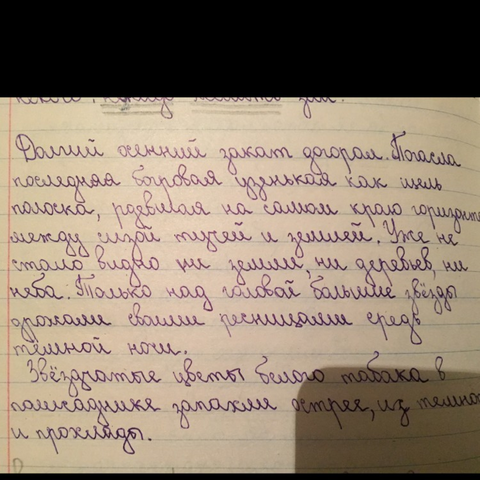 Долгий осенний закат догорал. Погасла
последняя багровая узенькая как щель
полоска, рдевшая на самом краю горизонта
между сизой тучей и землей. Уже не
стало видно ни земли, ни деревьев, ни
неба. Только над головой большие звёзды
дрожали своими ресницами средь
тёмной ночи.
Звёздчатые цветы белого табака в
палисаднике запахли острее, из темно
и прохлады.